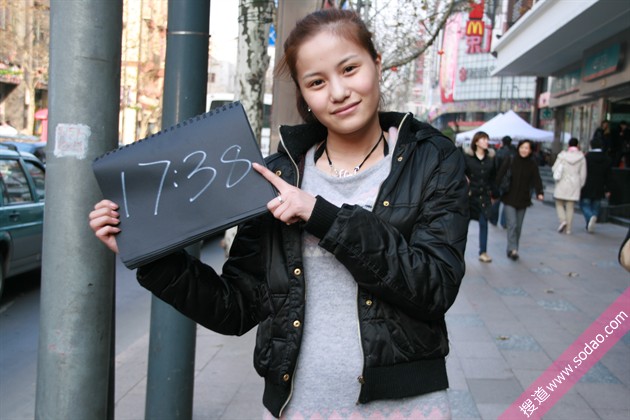 17:38
搜道 www.sodao.com